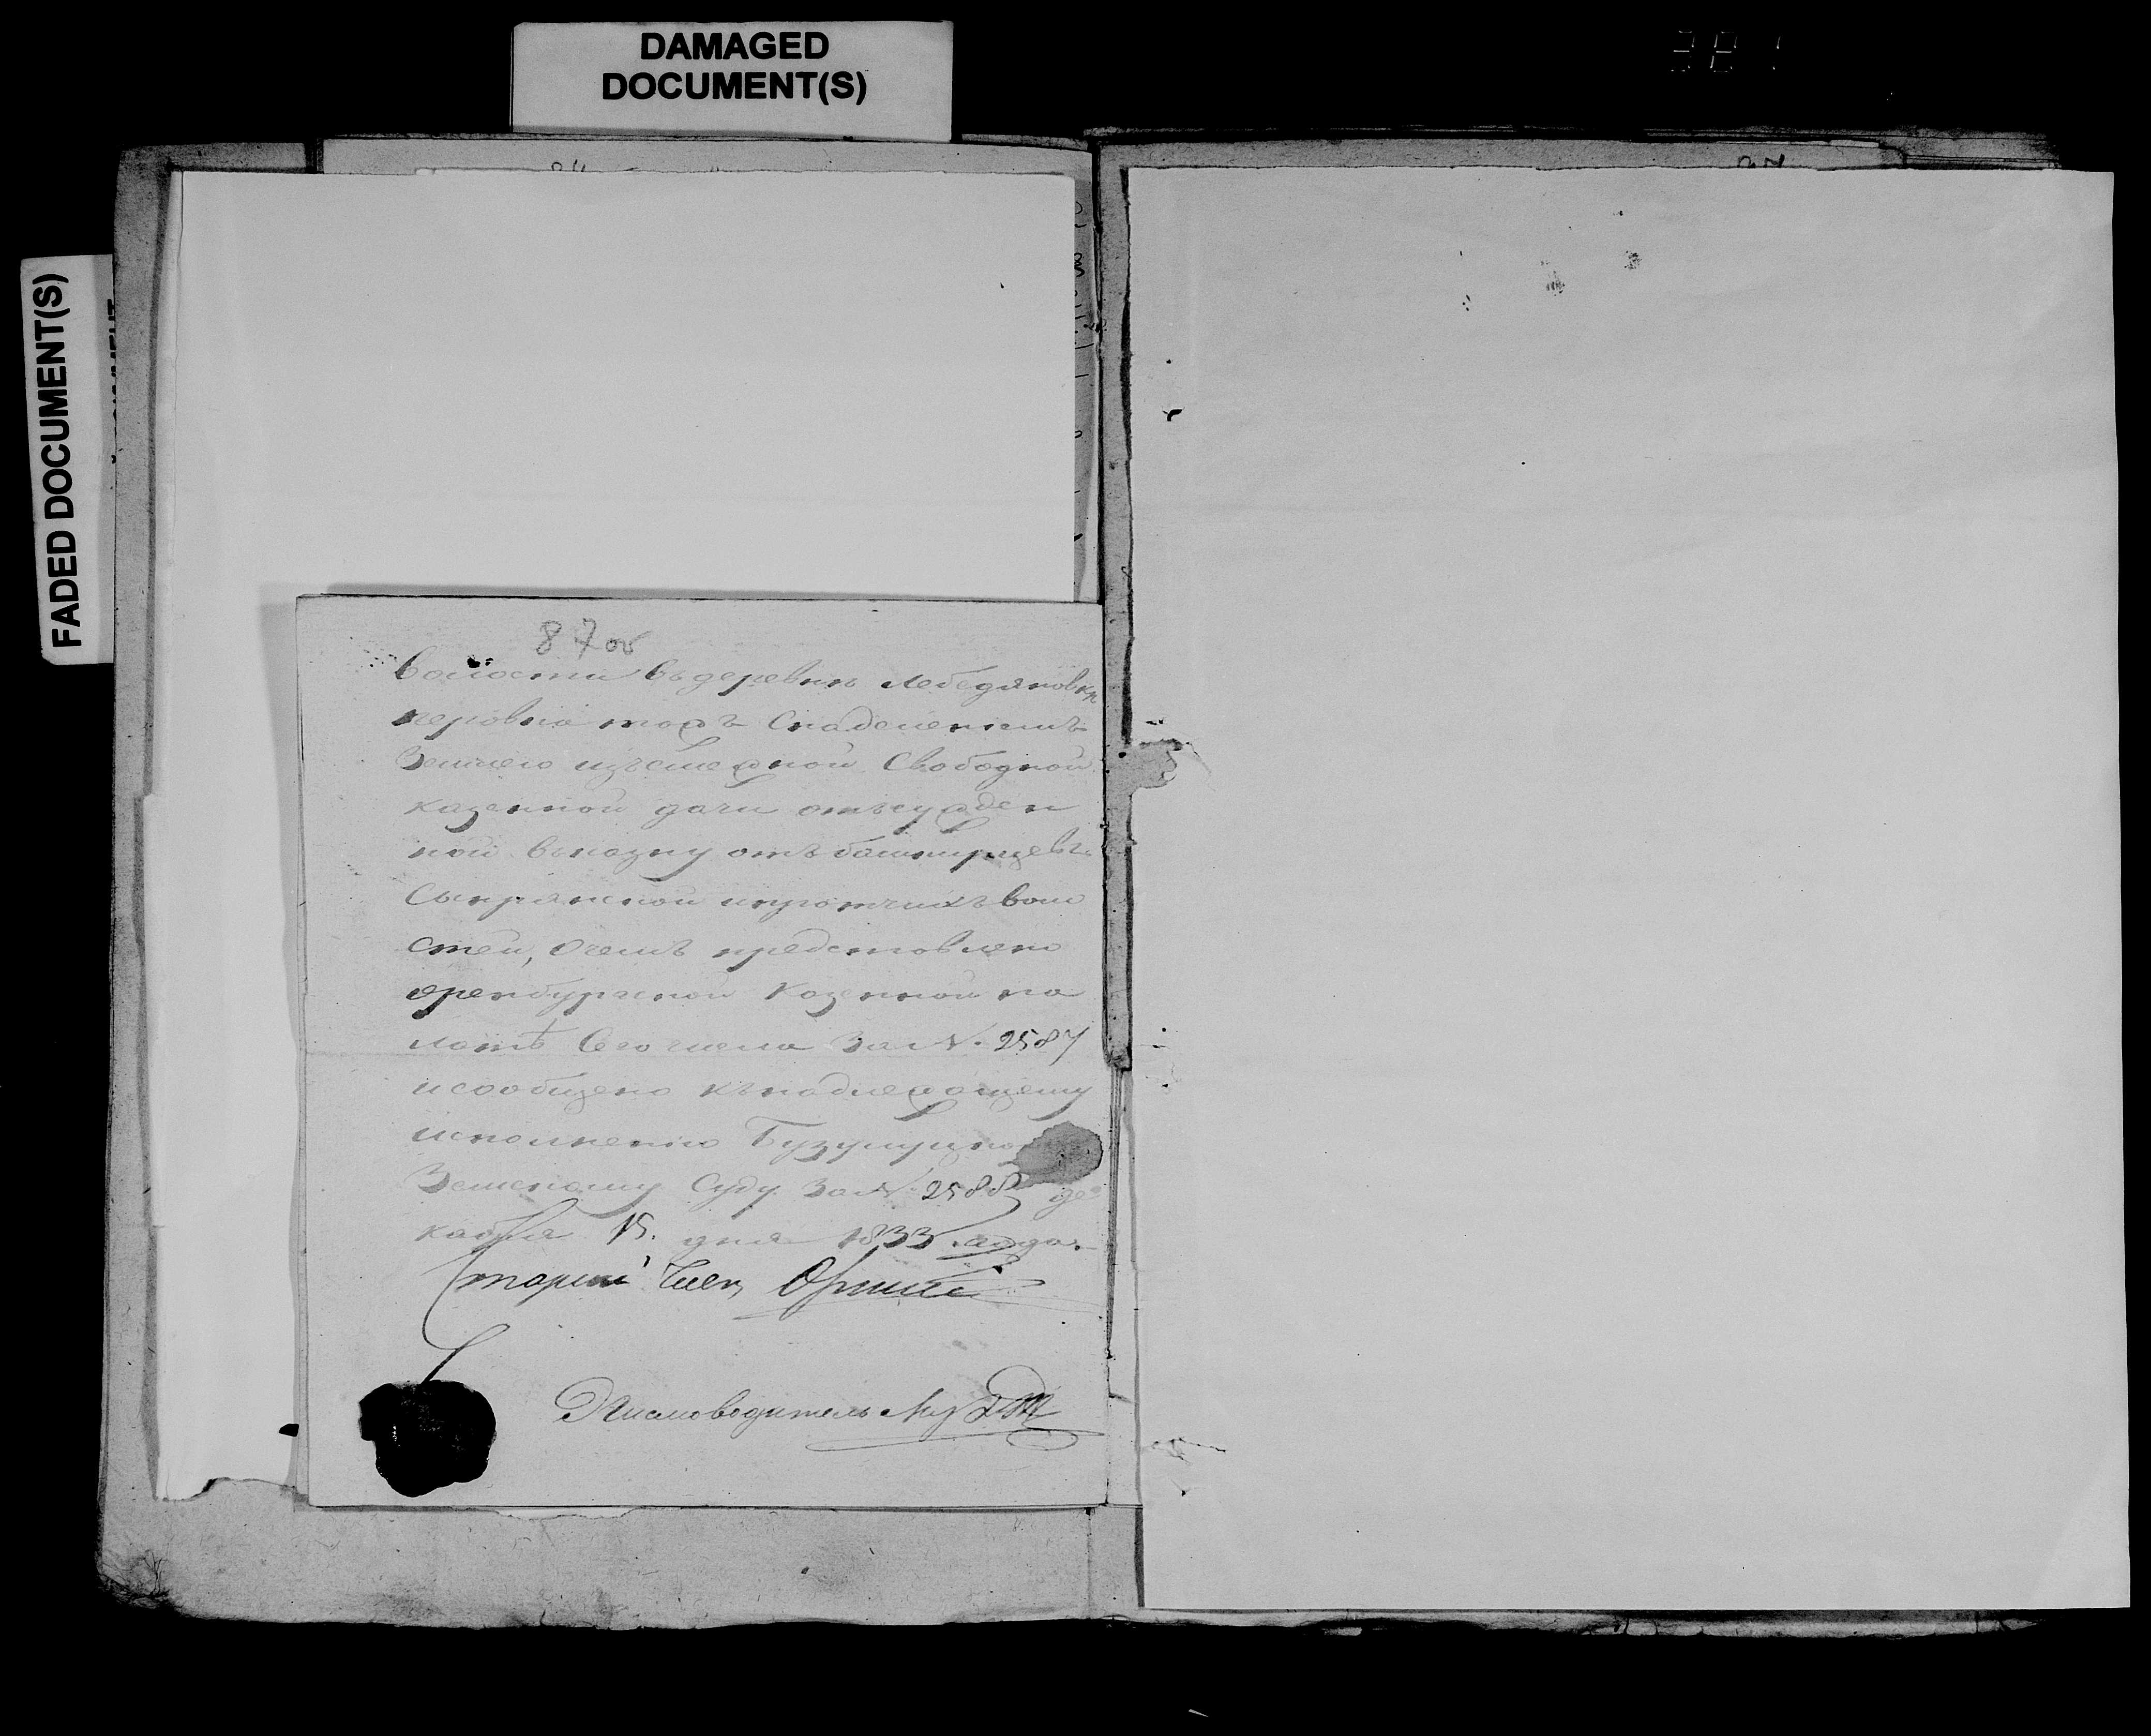 DAMAGED
DOCUMENT(S)
FADED DOCUMENT(S)
87об
волости въ деревнѣ Лебедяновкѣ
снаделениемъ
землею изъ смежной свободной
казенной дачи отъсужден
ной въ казну отъ башкирцевъ
Сынрянской ипротчихъ воло
стей, очемъ представлено
оренбургской Казенной па
латѣ Сего числа За №. 2587
исообщено къ надлежащему
исполнению Бузулуцко
Земскому Суду За № 2588 де
кабря 15. дня 1833 года.
Старший Член
Письмоводитель